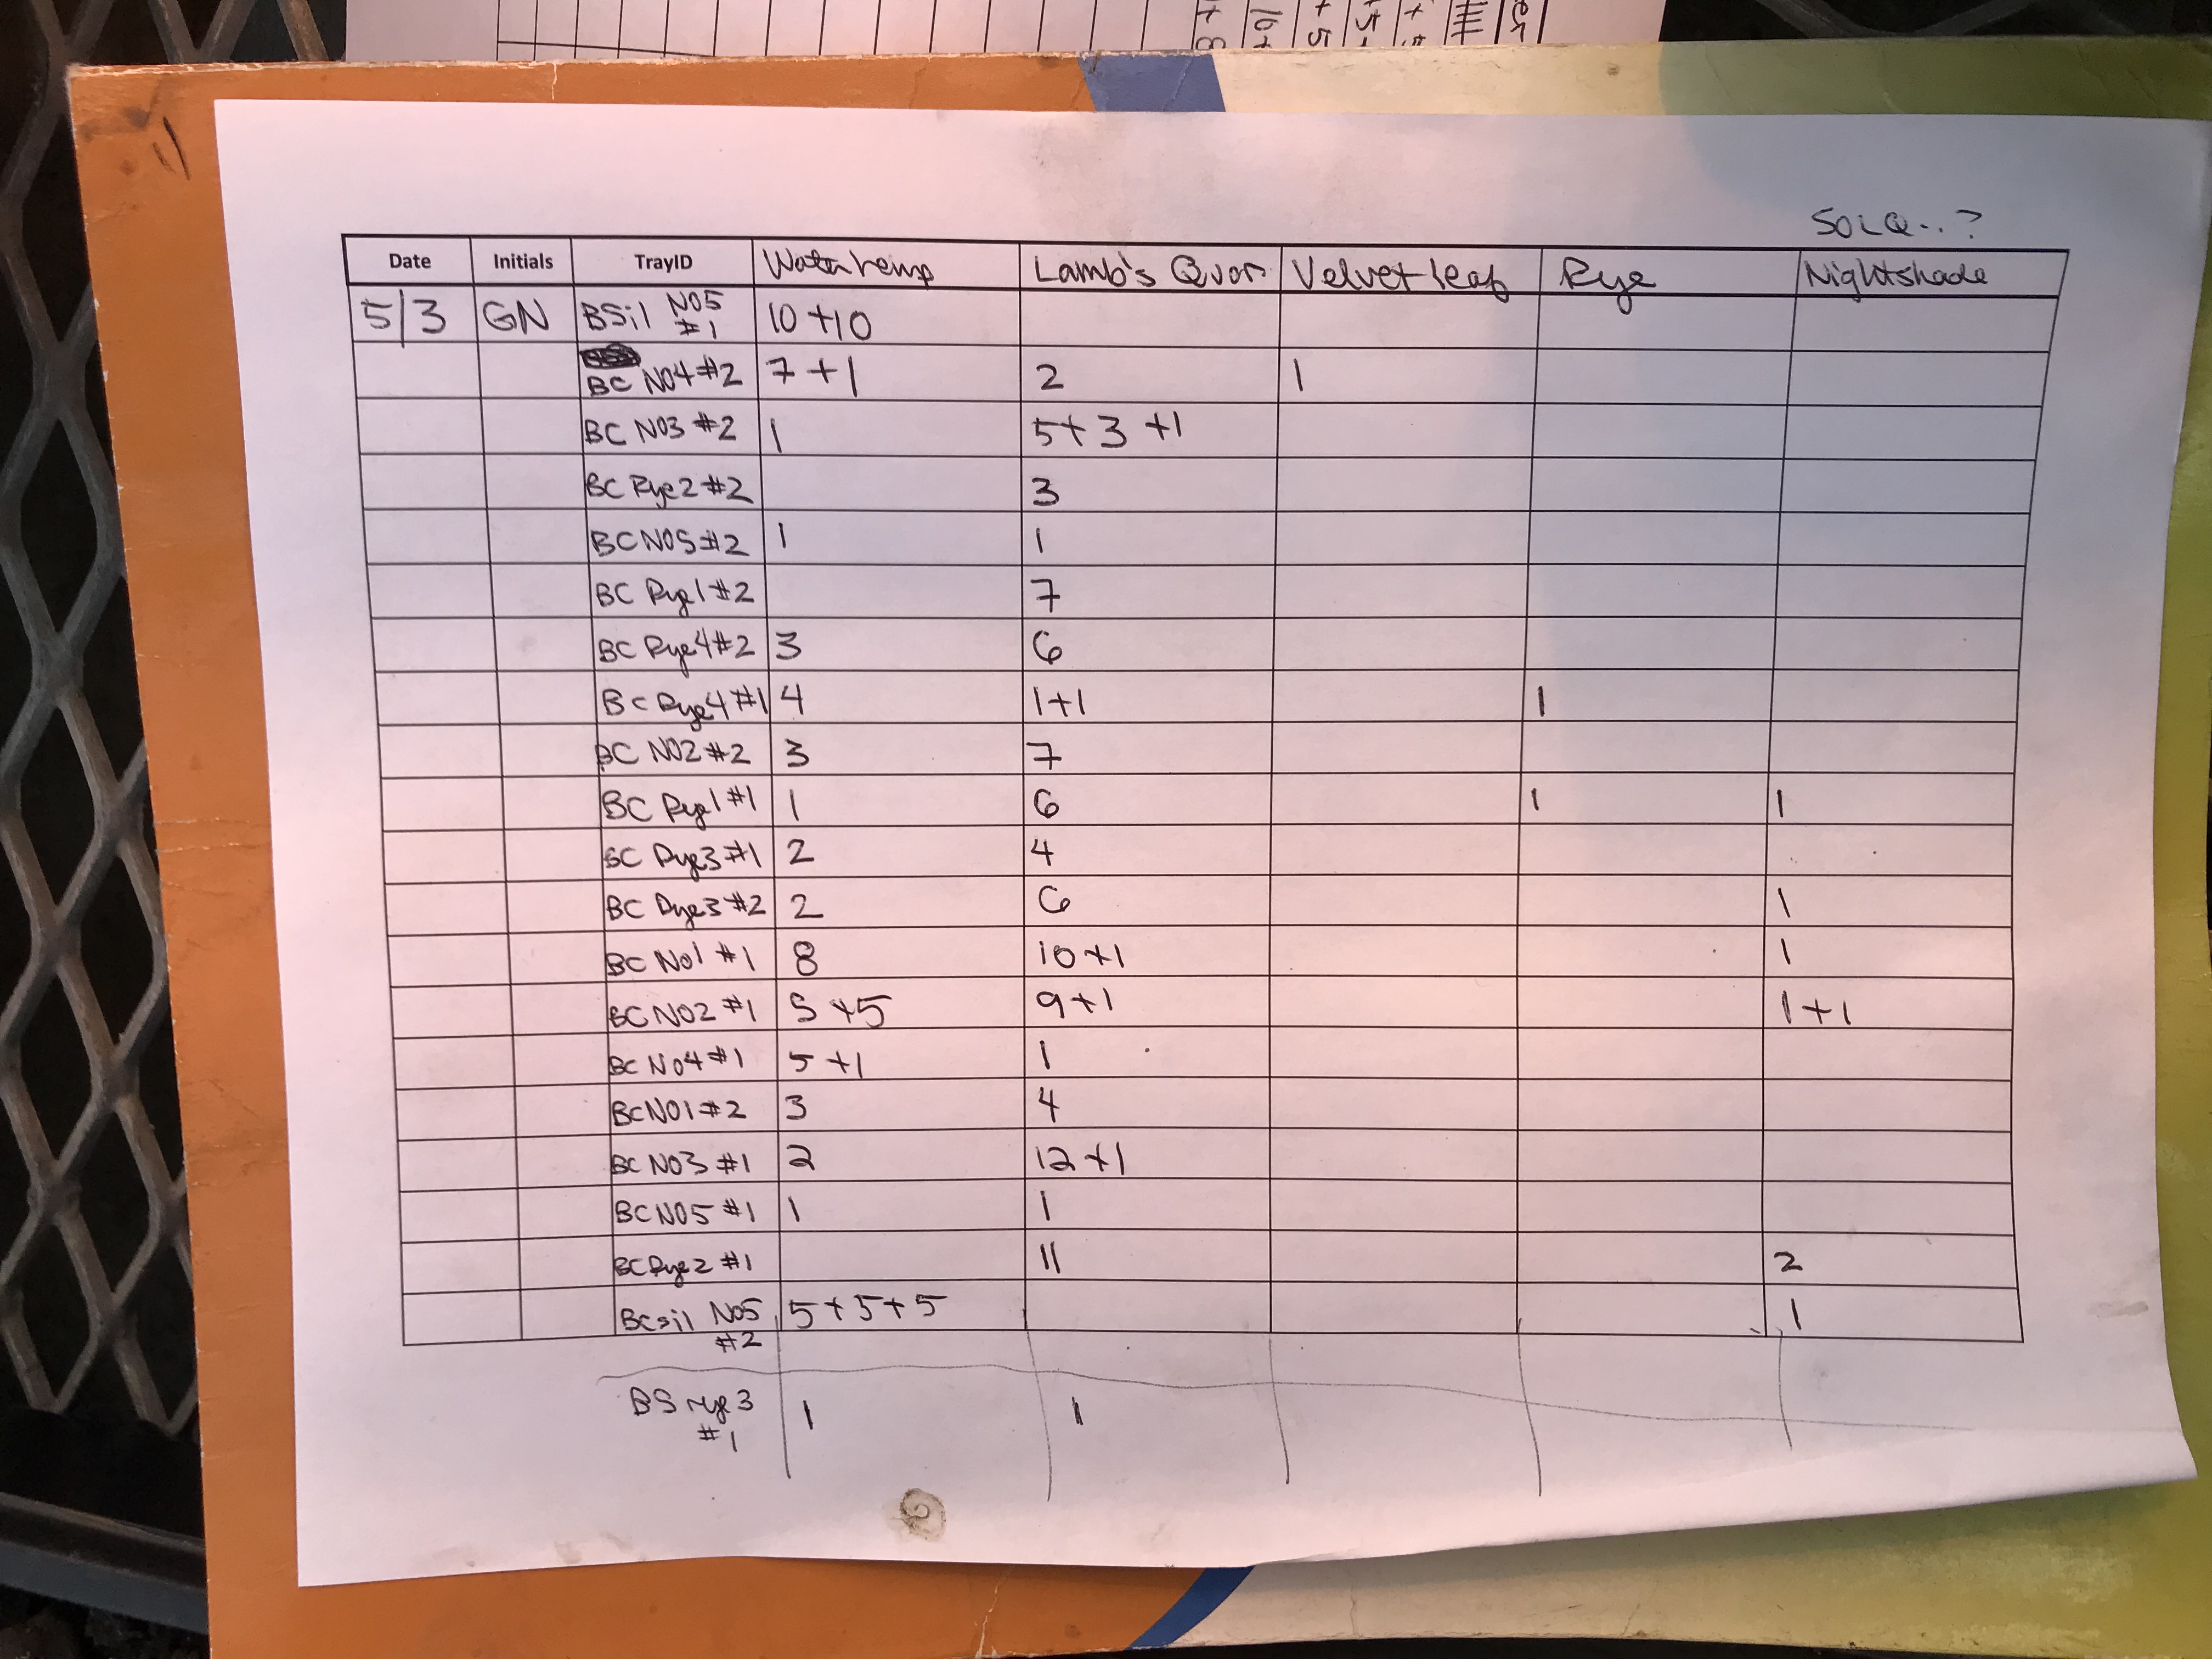 SOLQ..?
Date Initials TrayID Waterhemp Lamb's Quar Velvetleaf Rye Nightshade
5/3 GN BSil NO5 #1 10+10
BC NO4 #2 7+1 2 1
BC NO3 #2 1 5+3+1
BC Rye2 #2 3
BC NO5 #2 1 1
BC Rye1 #2 7
BC Rye4 #2 3 6
BC Rye4 #1 4 1+1 1
BC NO2 #2 3 7
BC Rye1 #1 1 6 1 1
BC Rye3 #1 2 4
BC Rye3 #2 2 6 1
BC No1 #1 8 10+1 1
BC NO2 #1 5+5 9+1 1+1
BC No4 #1 5+1 1
BC NO1 #2 3 4
BC NO3 #1 2 12+1
BC NO5 #1 1 1
BC Rye2 #1 11 2
BCsil No5 #2 5+5+5 1
BS rye 3 #1 1 1